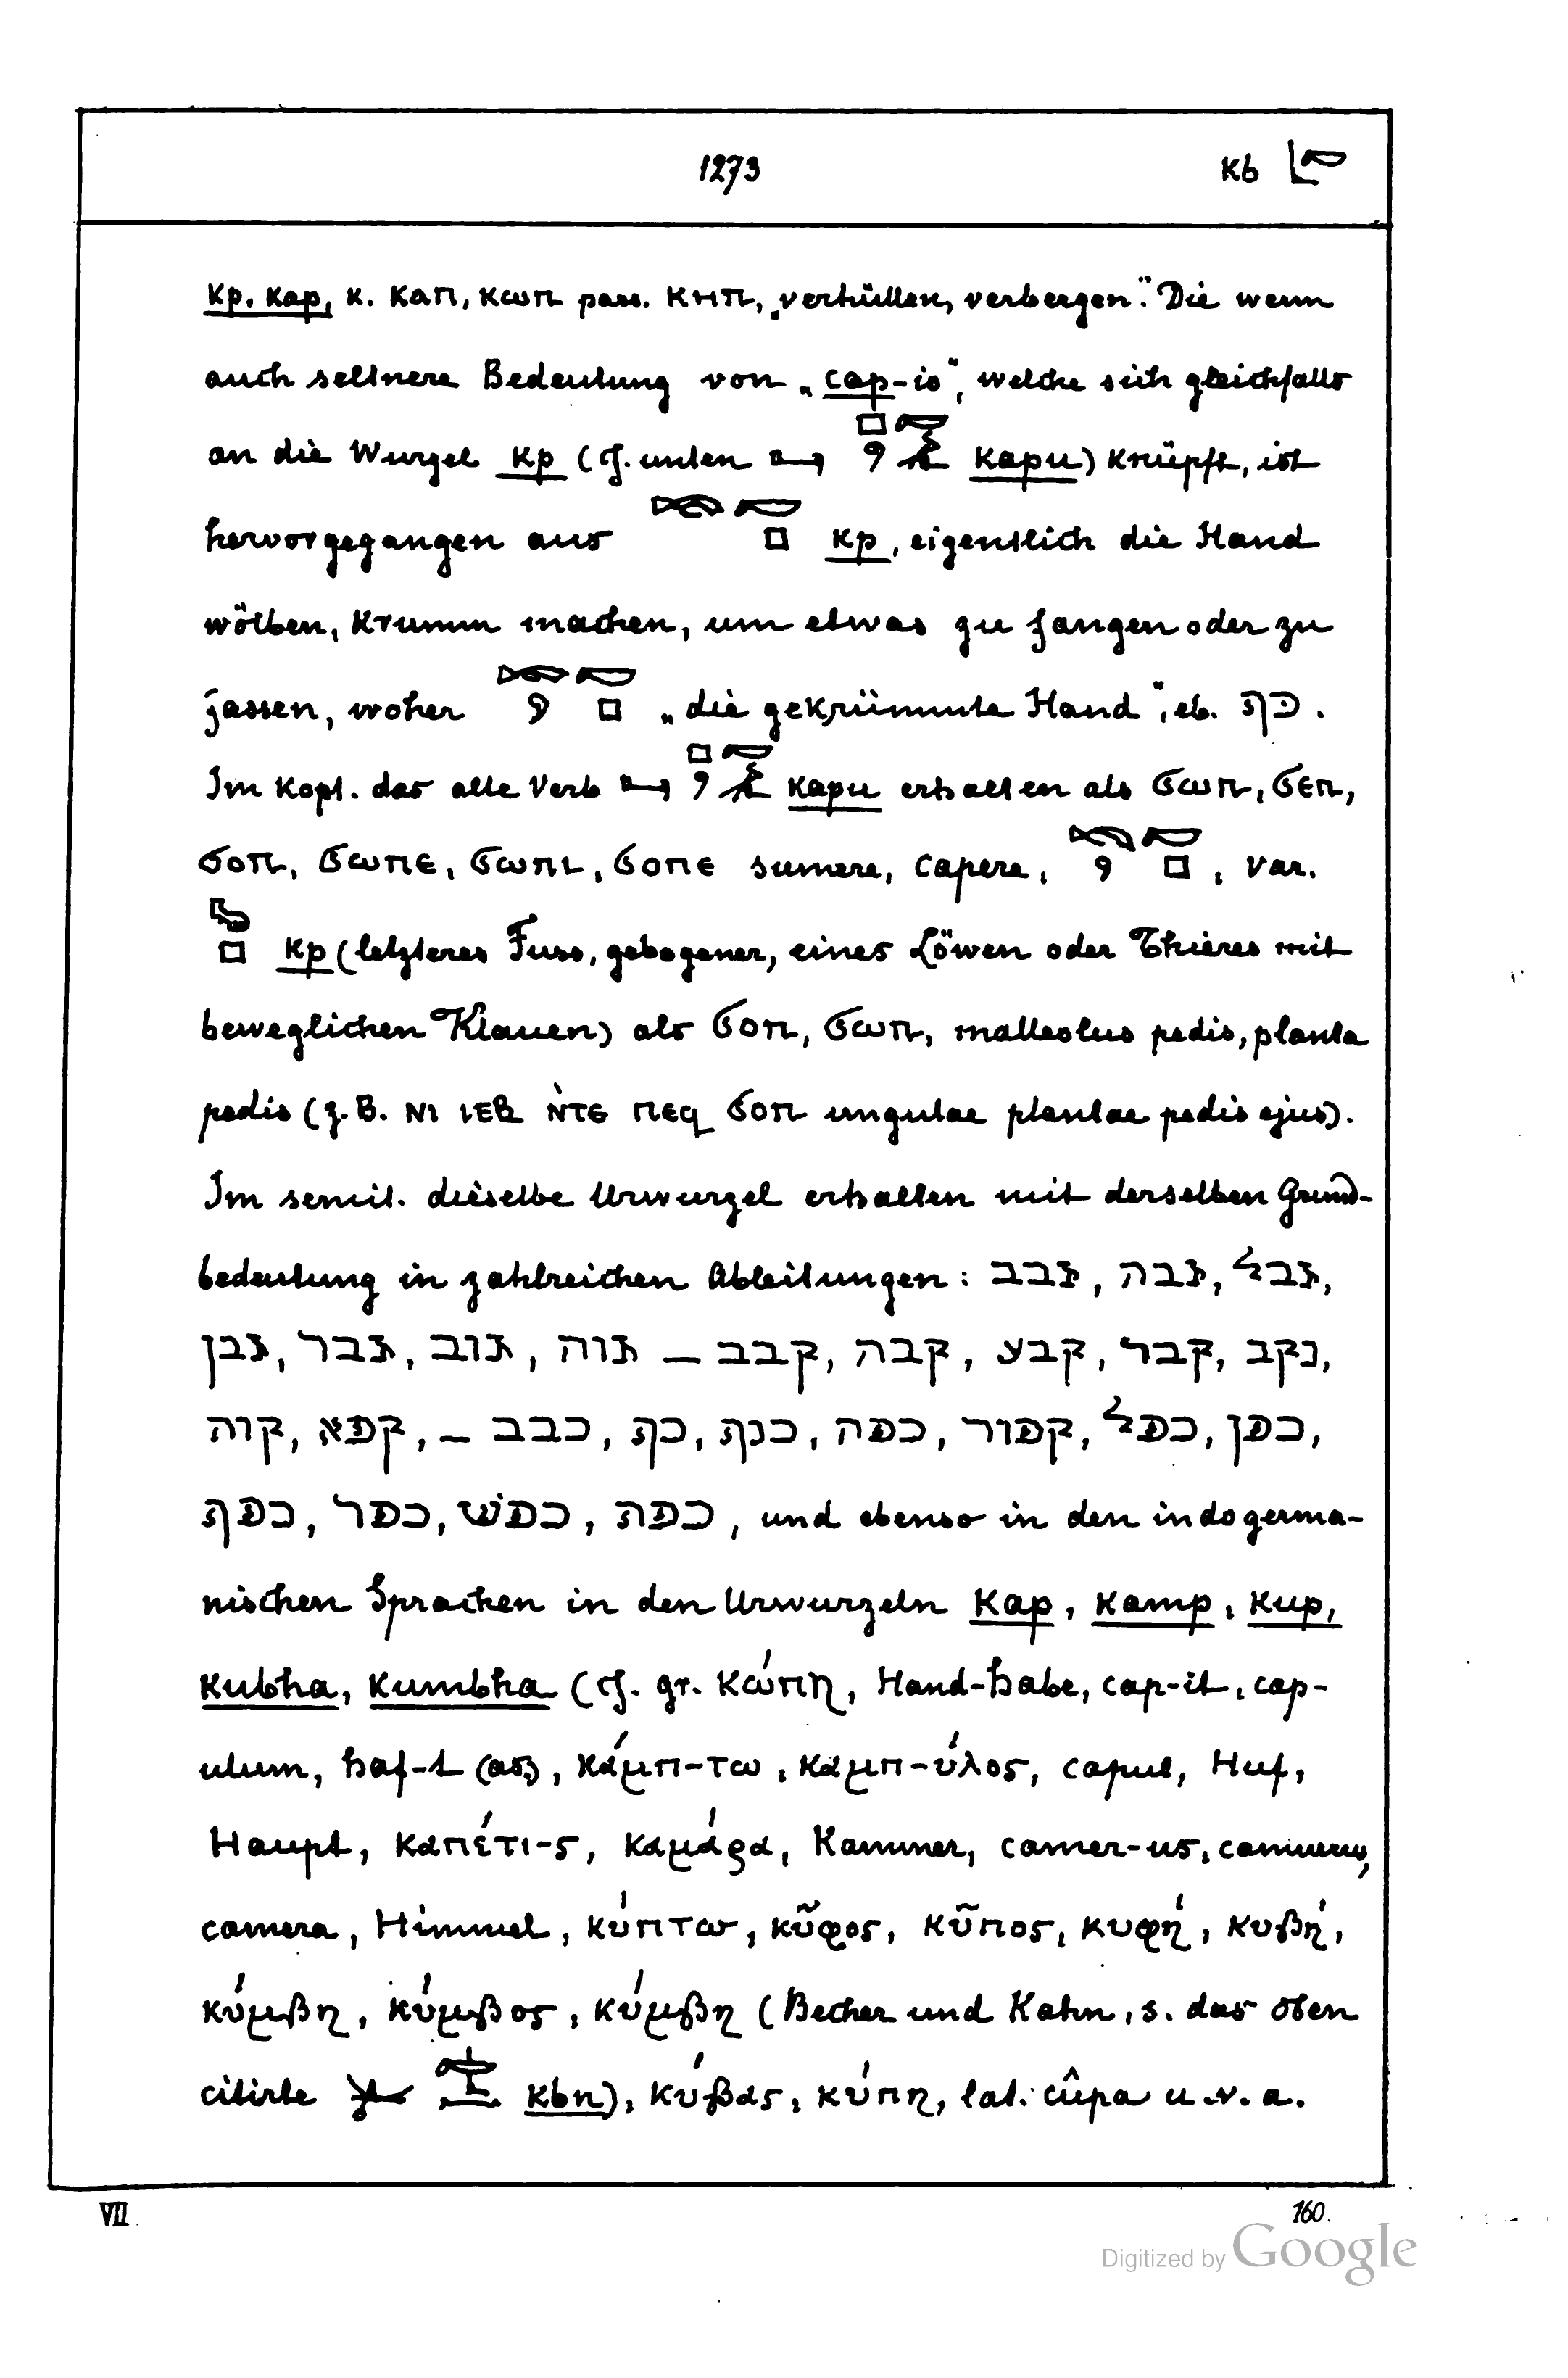 1273 kb
kp. kap, k. ⲕⲁⲡ, ⲕⲱⲡ pass. ⲕⲏⲡ, „verhüllen, verbergen". Die wenn
auch seltnere Bedeutung von „cap-io", welche sich gleichfalls
an die Wurzel kp (cf. unten kapu) knüpft, ist
hervorgegangen aus kp, eigentlich die Hand
wölben, krumm machen, um etwas zu fangen oder zu
fassen, woher „die gekrümmte Hand", eb. כף.
Im kopt. das alte Verb kapu erhalten als ϭⲱⲡ, ϭⲉⲡ,
ϭⲟⲡ, ϭⲱⲡⲉ, ϭⲱⲡⲓ, ϭⲟⲡⲉ sumere, capere, , var.
kp (letzteres Fuss, gebogener, eines Löwen oder Thieres mit
beweglichen Klauen) als ϭⲟⲡ, ϭⲱⲡ, malleolus pedis, planta
pedis (z.B. ⲛⲓ ⲓⲉⲃ ⲛ̀ⲧⲉ ⲡⲉϥ ϭⲟⲡ ungulae plantae pedis ejus).
Im semit. dieselbe Urwurzel erhalten mit derselben Grund-
bedeutung in zahlreichen Ableitungen: גבב, גבה, גבל,
גבן, גבר, גוב, גוה — קבב, קבה, קבע, קבר, נקב,
קוה, קפא, — כבב, כף, כנף, כפה, קפור, כפל, כפן,
כפף, כפר, כפש, כפת, und ebenso in den indogerma-
nischen Sprachen in den Urwurzeln kap, kamp, kup,
kubha, kumbha (cf. gr. κώπη, Hand-habe, cap-it, cap-
ulum, haf-t (as), κάμπ-τω, καμπ-ύλος, caput, Huf,
Haupt, καπέτι-ς, καμάρα, Kammer, camer-us, camurus,
camera, Himmel, κύπτω, κῦφος, κῦπος, κυφή, κυβή,
κύμβη, κύμβος, κύμβη (Becher und Kahn, s. das oben
citirte kbn), κύβας, κύπη, lat. cûpa u. v. a.
VII 160.
Digitized by Google